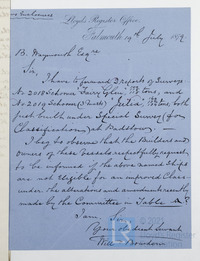 Lloyd's Register Office,
Falmouth 19th July 1879
B. Waymouth Esqre
Sir,
I have to forward 2 reports of Survey
No 2018 Schooner "Fairy Glen" tons, and
No 2019 Schooner tons, both
just built under Special Survey (for
Classification) at Padstow. —
I beg to observe that the Builders and
owners of these Vessels respectfully request
to be informed if the above named Ships
are not Eligible for an improved Class
under the alterations and amendments recently
made by the Committee in Table
I am, Sir,
Your obedient Servant
Will